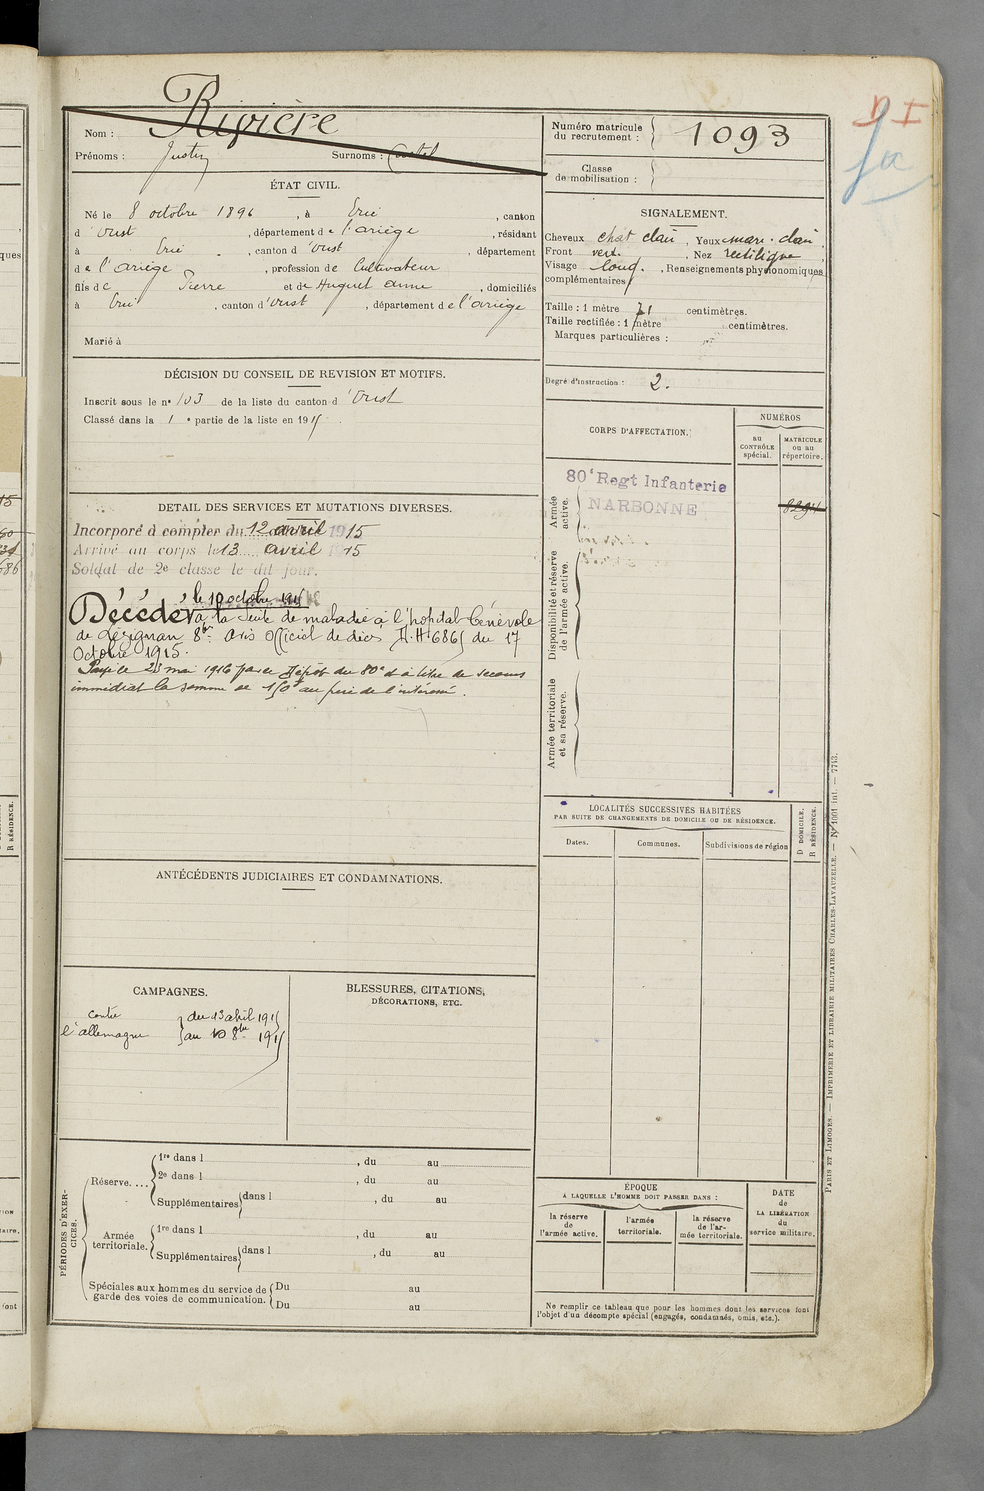 Rivière
Nom :
Prénoms : Justin Surnoms : Castel
Numéro matricule du recrutement : 1093
Classe de mobilisation :
ÉTAT CIVIL.
Né le 8 octobre 1896, à Ercé, canton
d'Oust, département de l'ariège, résidant
à Ercé, canton d'Oust, département
de l'ariège, profession de Cultivateur
fils de Pierre et de Huguet anne, domiciliés
à Ercé, canton d'oust, département de l'ariège
Marié à
SIGNALEMENT.
Cheveux chat clair, Yeux mar. clair,
Front vert., Nez rectiligne,
Visage long., Renseignements physionomiques
complémentaires
Taille : 1 mètre 71 centimètres.
Taille rectifiée : 1 mètre centimètres.
Marques particulières :
Degré d'instruction : 2.
DÉCISION DU CONSEIL DE REVISION ET MOTIFS.
Inscrit sous le n° 103 de la liste du canton d'Oust
Classé dans la 1e partie de la liste en 1915
CORPS D'AFFECTATION.
NUMÉROS
au CONTRÔLE spécial.
MATRICULE ou au répertoire.
Armée active.
80e Regt Infanterie
NARBONNE
Disponibilité et réserve de l'armée active.
Armée territoriale et sa réserve.
DETAIL DES SERVICES ET MUTATIONS DIVERSES.
Incorporé à compter du 12 avril 1915
Arrivé au corps le 13 avril 1915
Soldat de 2e classe le dit jour.
le 10 octobre 1915
Décédé à la suite de maladie à l'hopital bénévole
de Lézignan 8bre. Avis Officiel de décès H.H 6865 du 17
Octobre 1915.
Payé le 23 mai 1916 par le Dépôt du 80e à titre de secours
immédiat la somme de 150f au père de l'intéressé.
LOCALITÉS SUCCESSIVES HABITÉES
PAR SUITE DE CHANGEMENTS DE DOMICILE OU DE RÉSIDENCE.
Dates. Communes. Subdivisions de région
D DOMICILE. R RÉSIDENCE.
ANTÉCÉDENTS JUDICIAIRES ET CONDAMNATIONS.
CAMPAGNES.
contre du 13 avril 1915
l'allemagne au 10 8bre 1915
BLESSURES, CITATIONS, DÉCORATIONS, ETC.
PÉRIODES D'EXERCICES.
Réserve....
1re dans l , du au
2e dans l , du au
Supplémentaires dans l , du au
Armée territoriale.
1re dans l , du au
Supplémentaires dans l , du au
Spéciales aux hommes du service de garde des voies de communication.
Du au
Du au
ÉPOQUE
A LAQUELLE L'HOMME DOIT PASSER DANS :
la réserve de l'armée active.
l'armée territoriale.
la réserve de l'armée territoriale.
DATE de LA LIBÉRATION du service militaire.
Ne remplir ce tableau que pour les hommes dont les services font
l'objet d'un décompte spécial (engagés, condamnés, omis, etc.).
PARIS ET LIMOGES. — IMPRIMERIE ET LIBRAIRIE MILITAIRES CHARLES-LAVAUZELLE. — N° 1001 int. — 7713.